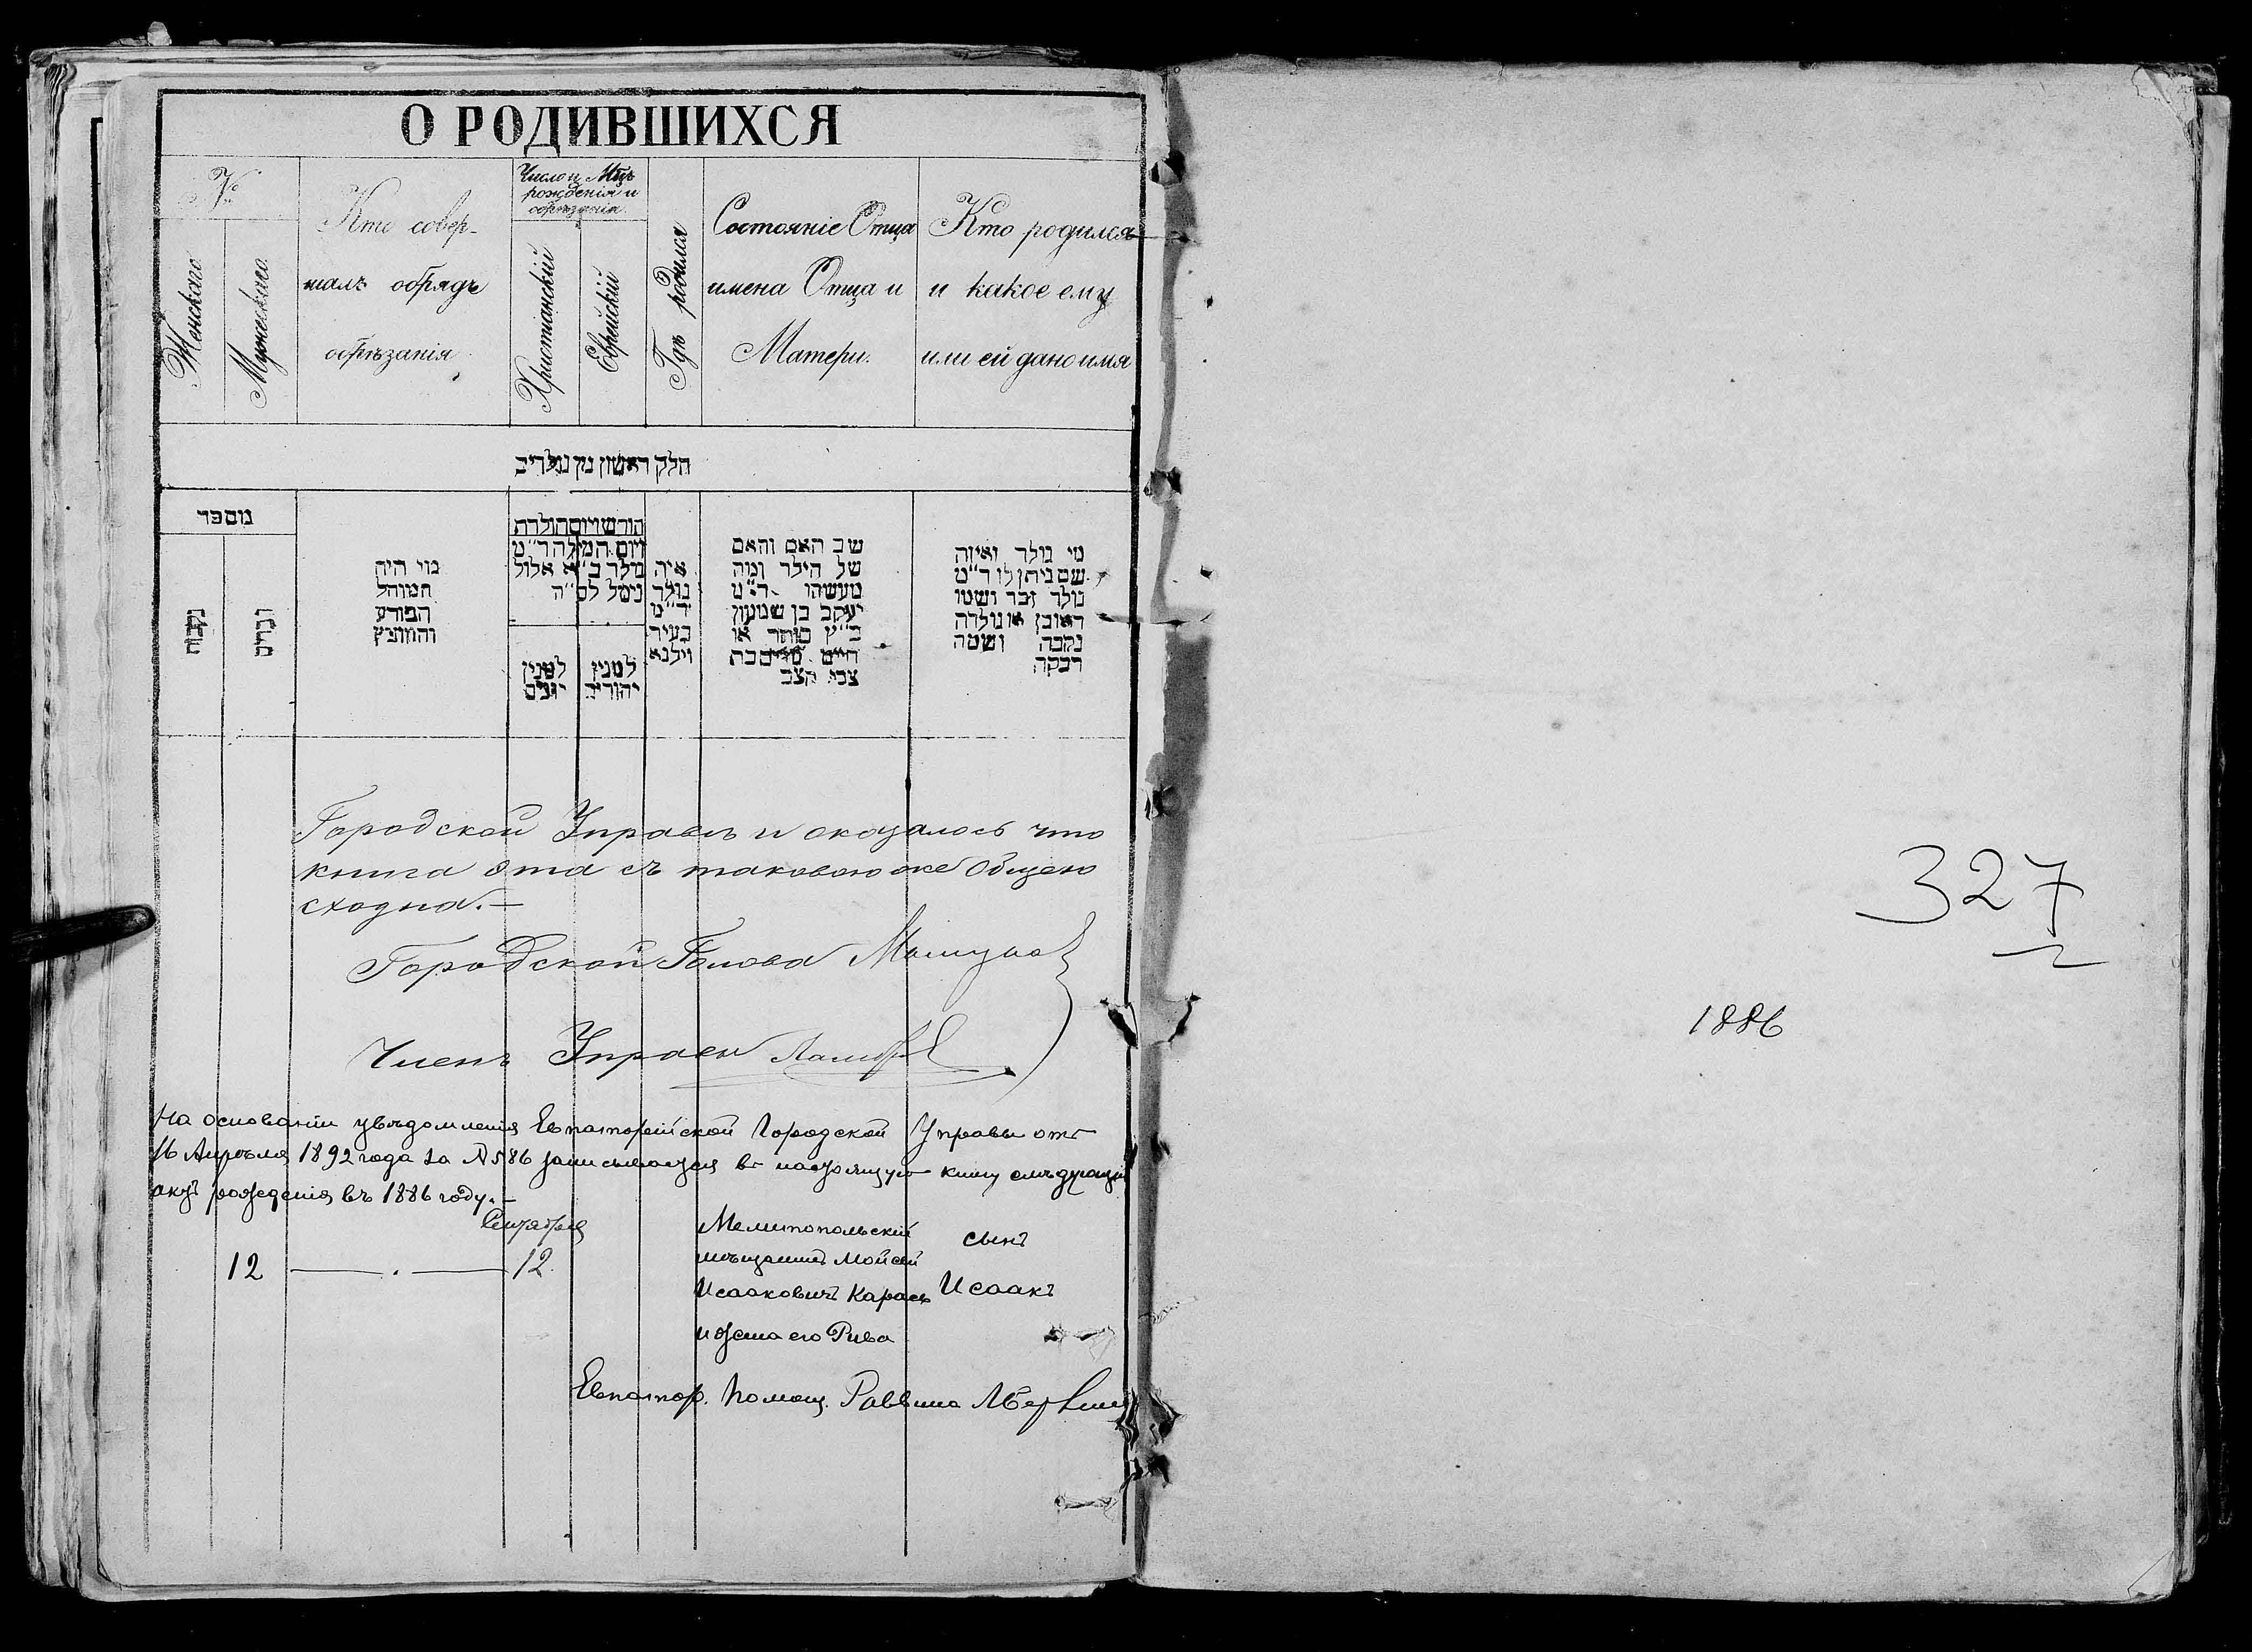 О РОДИВШИХСЯ
№
Женскаго
Мужескаго
Кто совер-
шалъ обрядъ
обрѣзанія
Число и Мѣц.
рожденія и
обрѣзанія.
Христіанскій
Еврейскій
Гдѣ родился
Состояніе Отца
имена Отца и
Матери.
Кто родился
и какое ему
или ей дано имя
חלק ראשון מן נולדים
מספר
נקבות
זכרים
מי היה
המוהל
הפורע
והמוצץ
חודש ויום הולדת
ויום המילה ד"מ
נולד כ"א אלול
נימל לס"ה
למנין
יונים
למנין
יהודים
איה
נולד
ד"מ
בעיר
וילנא
שם האם והאם
של הילד ומה
מעשהו ד"מ
יעקב בן שמעון
כ"ץ סוחר או
חיים
צבי קצב
מי נולד ואיזה
שם ניתן לו ד"מ
נולד זכר ושמו
ראובן או נולדה
נקבה ושמה
רבקה
Городской Управѣ и оказалось что
книга эта съ таковою же Общею
сходна.—
Городской Голова
Членъ Управы
На основаніи увѣдомленія Евпаторійской Городской Управы отъ
16 Апрѣля 1892 года за N 586 записывается въ настоящую книгу слѣдующій
актъ рожденія въ 1886 году.—
Сентября
12 — . — 12.
Мелитопольскій
мѣщанинъ Мойсей
Исааковичъ Карась
и жена его Рива
сынъ
Исаакъ
Евпатор. Помощ. Раввина
327
1886